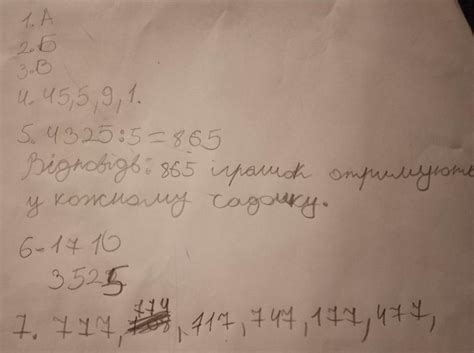 1. А
2. Б
3. В
4. 45, 5, 9, 1.
5. 4325:5=865
Відповідь: 865 іграшок отримують
у кожному садочку.
6-1710
3525
7. 777, 774, 717, 747, 177, 477,